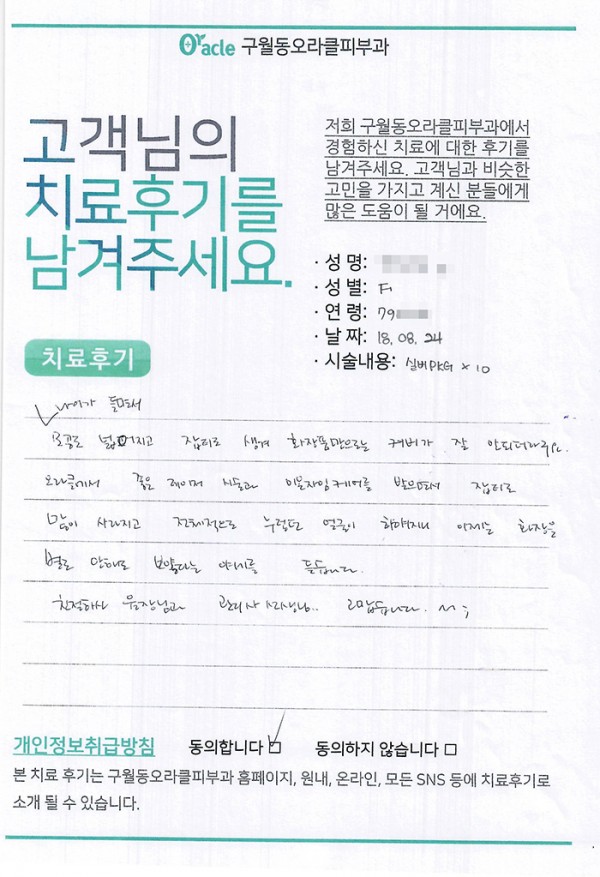 Oracle 구월동오라클피부과
고객님의
치료후기를
남겨주세요.
저희 구월동오라클피부과에서
경험하신 치료에 대한 후기를
남겨주세요. 고객님과 비슷한
고민을 가지고 계신 분들에게
많은 도움이 될 거에요.
· 성 명:
· 성 별: F
· 연 령: 79
· 날 짜: 18. 08. 24
· 시술내용: 실버PKG × 10
치료후기
나이가 들면서
모공도 넓어지고 잡티도 생겨 화장품만으로는 커버가 잘 안되더라구요.
오라클에서 좋은 레이저 시술과 이온자임케어를 받으면서 잡티도
많이 사라지고 전체적으로 누렇던 얼굴이 하얘지니 이제는 화장을
별로 안해도 뽀얗다는 얘기를 듣습니다.
친절하신 원장님과 관리사 선생님.. 고맙습니다. ^^;
개인정보취급방침 동의합니다 동의하지 않습니다
본 치료 후기는 구월동오라클피부과 홈페이지, 원내, 온라인, 모든 SNS 등에 치료후기로
소개 될 수 있습니다.